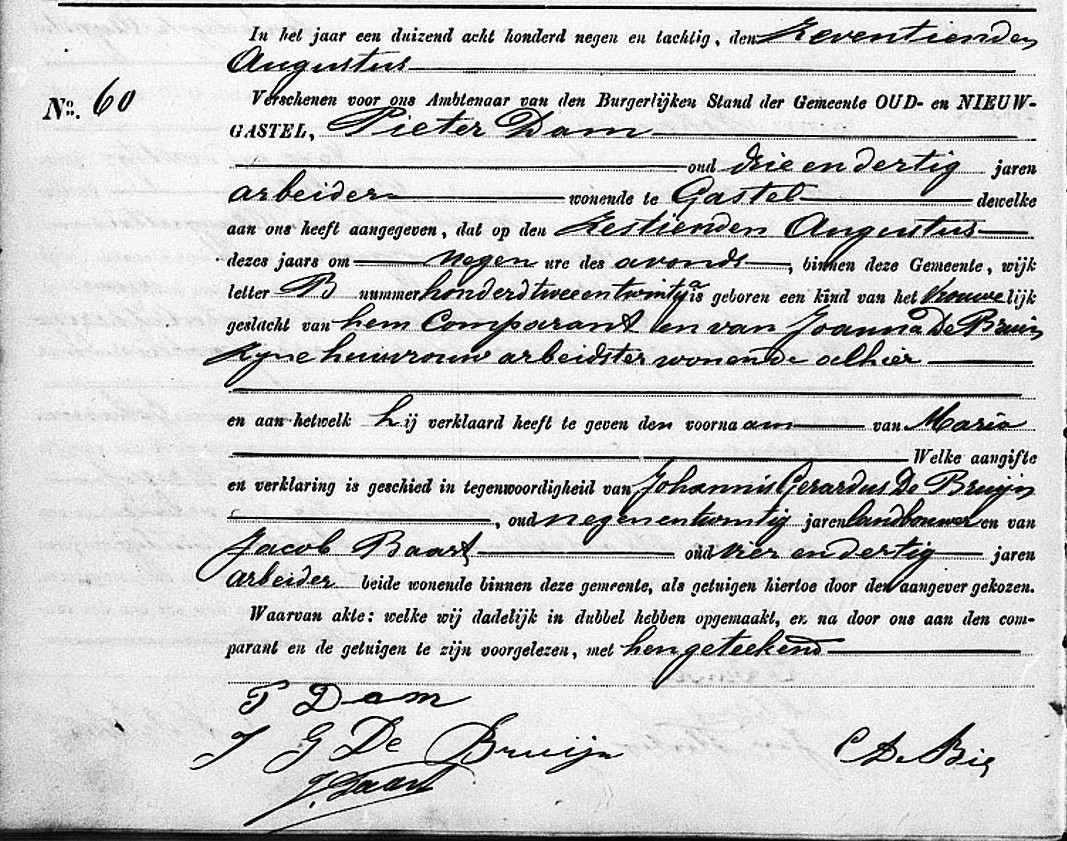 In het jaar een duizend acht honderd negen en tachtig, den zeventienden
Augustus
No. 60
Verschenen voor ons Ambtenaar van den Burgerlijken Stand der Gemeente OUD- en NIEUW-
GASTEL, Pieter Dam
oud drie en dertig jaren
arbeider wonende te Gastel dewelke
aan ons heeft aangegeven, dat op den zestienden Augustus
dezes jaars om negen ure des avonds, binnen deze Gemeente, wijk
letter B nummer honderd twee en twintig a is geboren een kind van het vrouwelijk
geslacht van hem Comparant en van Joanna De Bruin
zyne huisvrouw arbeidster wonende alhier
en aan hetwelk hij verklaard heeft te geven den voornaam van Maria
Welke aangifte
en verklaring is geschied in tegenwoordigheid van Johannis Gerardus De Bruijn
, oud negenentwintig jaren landbouwer en van
Jacob Baart oud vier en dertig jaren
arbeider beide wonende binnen deze gemeente, als getuigen hiertoe door den aangever gekozen.
Waarvan akte: welke wij dadelijk in dubbel hebben opgemaakt, en na door ons aan den com-
parant en de getuigen te zijn voorgelezen, met hen geteekend
P Dam
J G De Bruijn
C De Bie
J. Baart